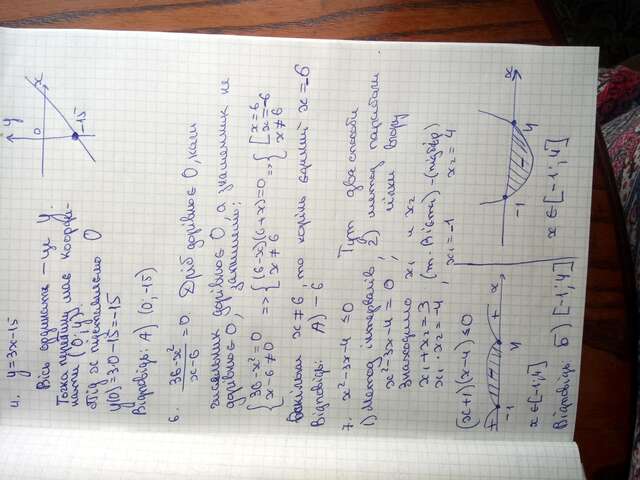 4. y=3x-15
Вісь ординат - це y.
Точка перетину має координати (0; y).
Під x підставляємо 0
y(0)=3·0-15=-15
Відповідь: А) (0; -15)
y
0
x
-15
6. 36-x²/x-6=0 Дріб дорівнює 0, коли
чисельник дорівнює 0, а знаменник не
дорівнює 0,
{36-x²=0 x-6≠0 => {(6-x)(6+x)=0 x≠6 => {[x=6 x=-6 x≠6
Оскільки x≠6, то корінь єдиний x=-6
Відповідь: А) -6
7. x²-3x-4≤0 Тут два способи
1) Метод інтервалів, 2) метод параболи
x²-3x-4=0; вгору
Знаходимо x₁ и x₂
x₁+x₂=3 (т. Вієта)-(підбір)
x₁·x₂=-4, x₁=-1 x₂=4
(x+1)(x-4)≤0
+ - +
-1 4 x
x∈[-1;4]
Відповідь: Б) [-1;4]
-1 - 4 x
x∈[-1;4]